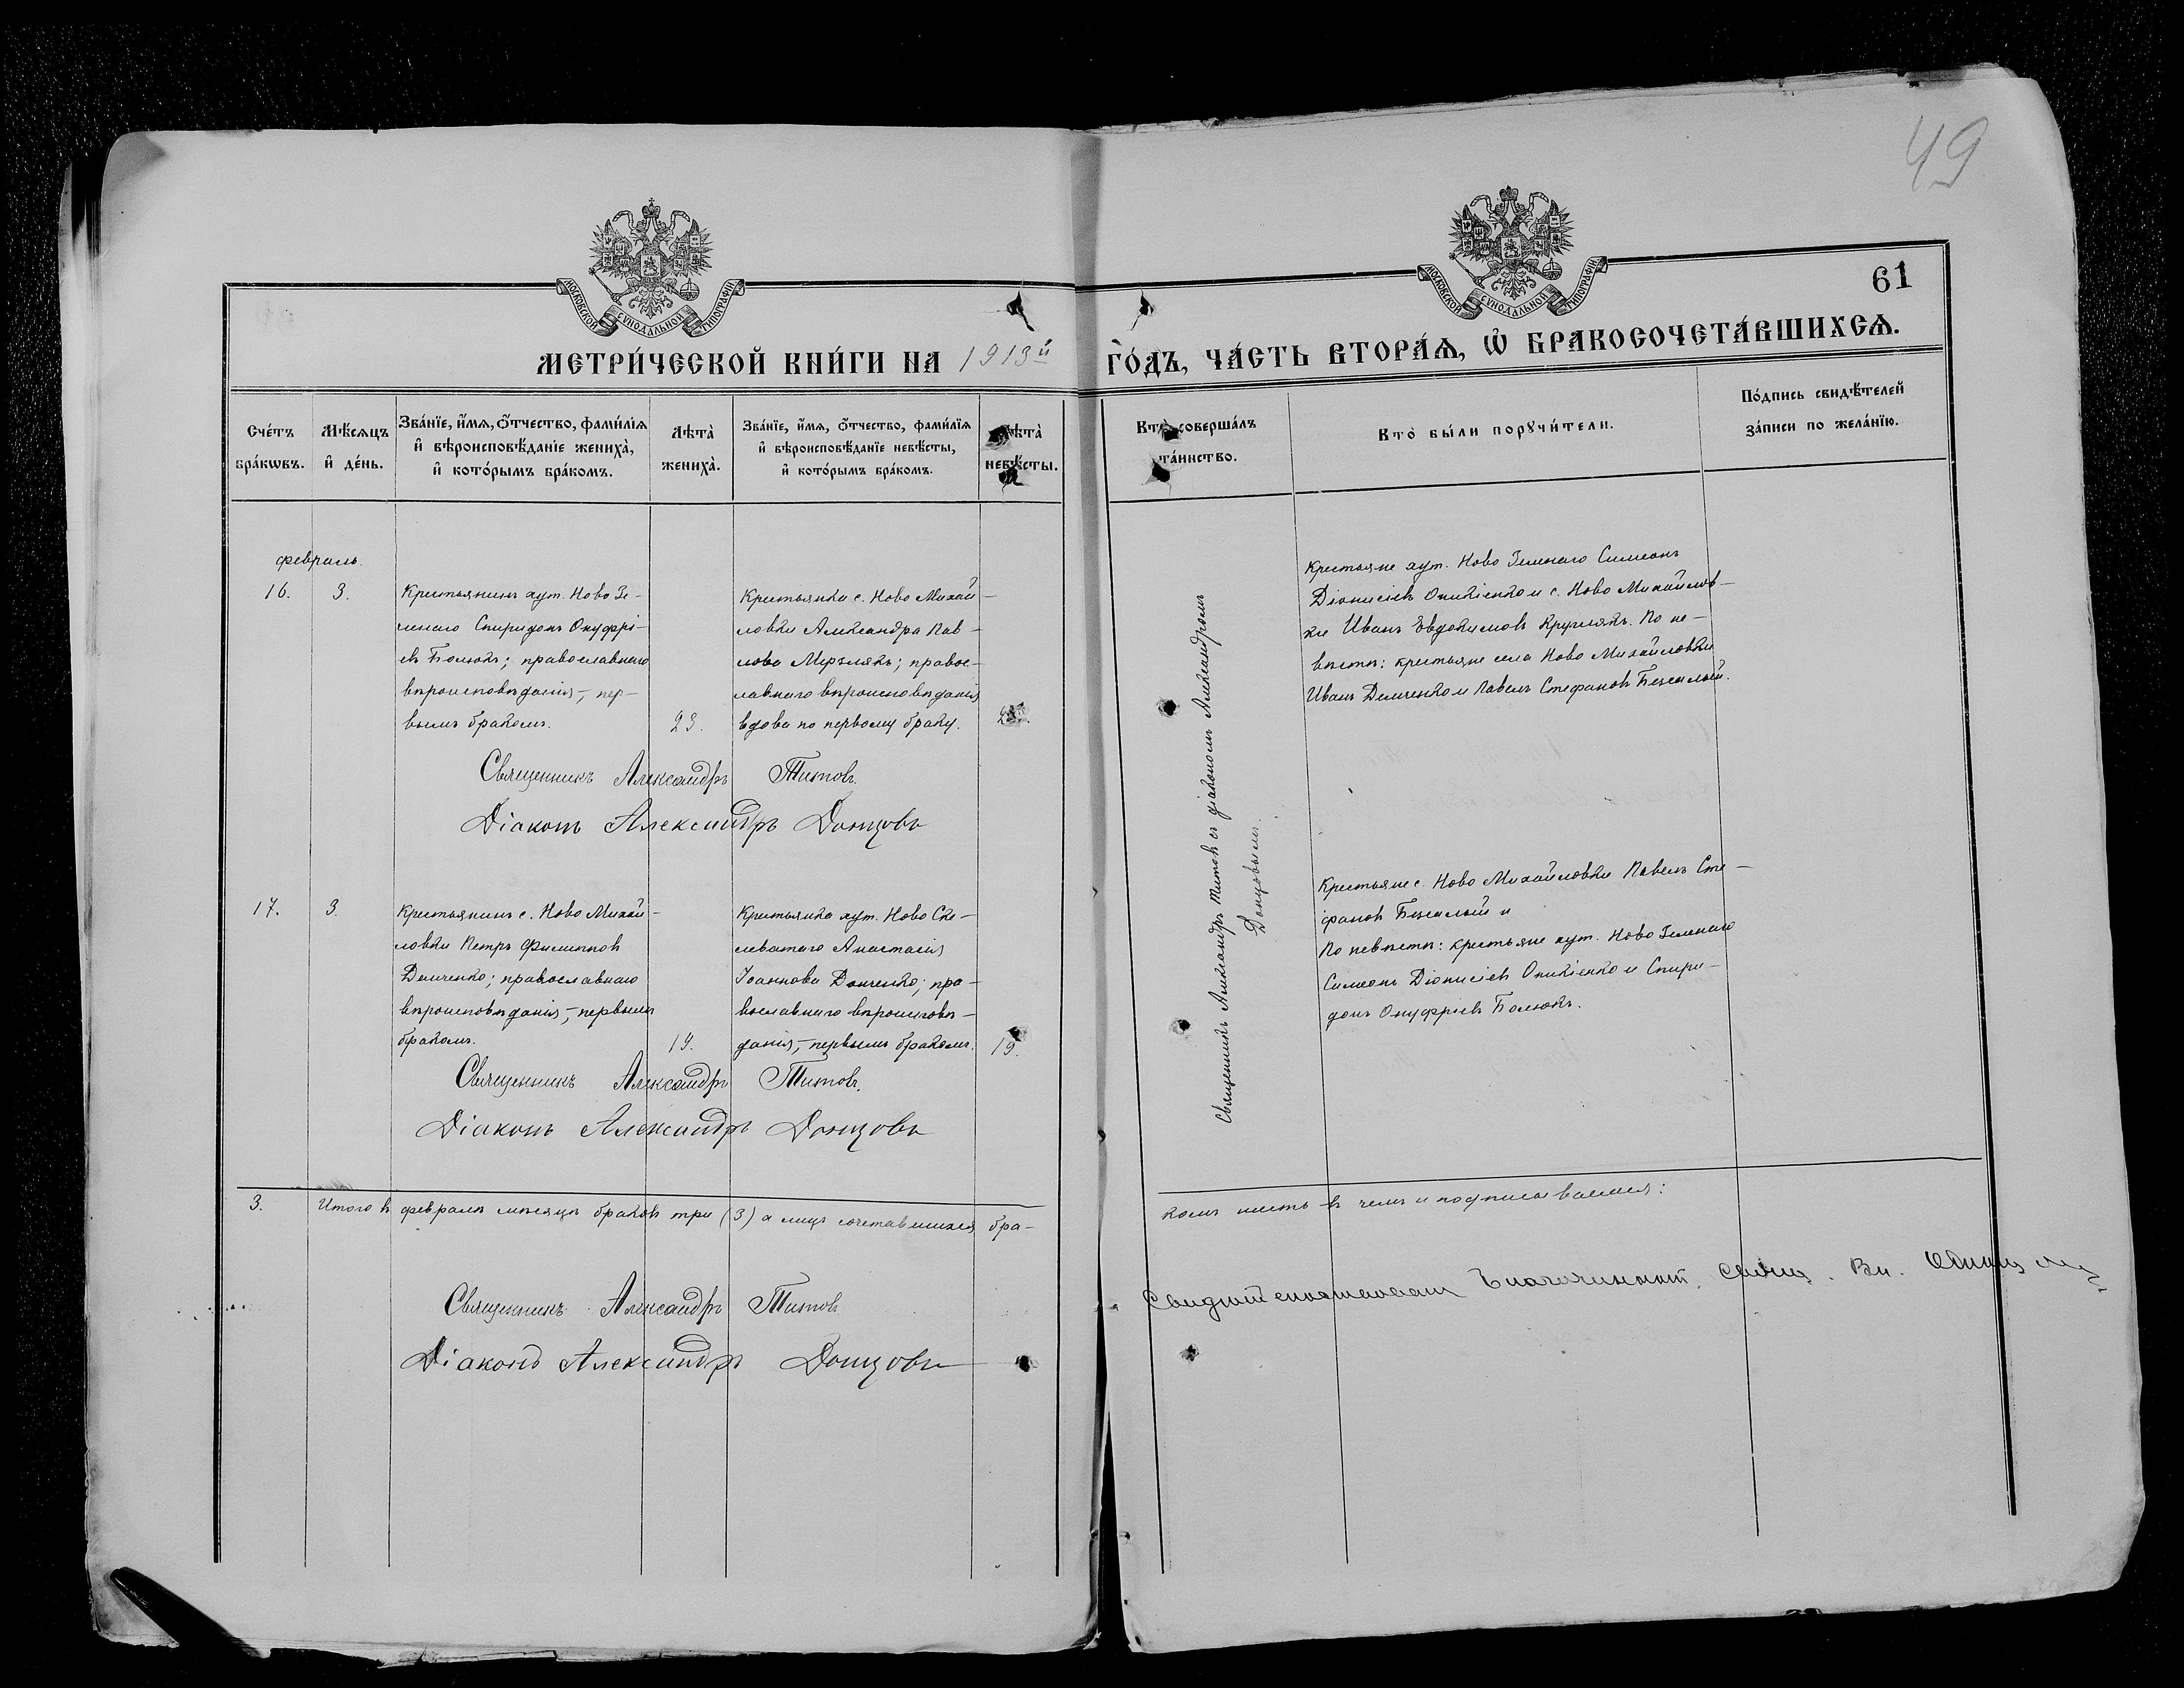 49
61
МОСКОВСКОЙ СУНОДАЛЬНОЙ ТИПОГРАФІИ
МОСКОВСКОЙ СУНОДАЛЬНОЙ ТИПОГРАФІИ
МЕТРИ́ЧЕСКОЙ КНИ́ГИ НА 1913й
ГО́ДЪ, ЧА́СТЬ ВТОРА́Ѧ, Ѡ҆ БРАКОСОЧЕТА́ВШИХСѦ.
Сче́тъ
бра́кѡвъ.
Мѣ́сяцъ
и҆ де́нь.
Зва́нїе, и҆́мѧ, ѻ҆́тчество, фами́лїѧ
и҆ вѣроисповѣ́данїе жениха̀,
и҆ кото́рымъ бра́комъ.
Лѣта̀
жениха̀.
Зва́нїе, и҆́мѧ, ѻ҆́тчество, фами́лїѧ
и҆ вѣроисповѣ́данїе невѣ́сты,
и҆ кото́рымъ бра́комъ.
Лѣта̀
невѣ́сты.
Кто̀ соверша́лъ
та́инство.
Кто̀ бы́ли порꙋчи́тели.
По́дпись свидѣ́телей
за́писи по жела́нїю.
февраль.
16.
3.
Крестьянинъ хут. Ново Зе-
ленаго Спиридонъ Онуфрі-
евъ Балюкъ; православнаго
вѣроисповѣданія, - пер-
вымъ бракомъ.
23.
Крестьянка с. Ново Михай-
ловки Александра Пав-
лова Мерзлякъ; правос-
лавнаго вѣроисповѣданія
вдова по первому браку.
Священникъ Александръ Титовъ съ діакономъ Александромъ
Донцовымъ.
Крестьяне хут. Ново Зеленаго Симеонъ
Діонисіевъ Оникіенко и с. Ново Михайлов-
ки Иванъ Евдокимовъ Круглякъ. По не-
вѣстѣ: крестьяне села Ново Михайловки
Иванъ Демченко и Павелъ Стефановъ
Священникъ Александръ Титовъ.
Діаконъ Александръ Донцовъ
17.
3.
Крестьянинъ с. Ново Михай-
ловки Петръ Филипповъ
Демченко; православнаго
вѣроисповѣданія, - первымъ
бракомъ.
19.
Крестьянка хут. Ново Ске-
леватаго Анастасія
Іоаннова Донченко; пра-
вославнаго вѣроисповѣ-
данія, - первымъ бракомъ.
19.
Крестьяне с. Ново Михайловки Павелъ Сте-
фановъ и
По невѣстѣ: крестьяне хут. Ново Зеленаго
Симеонъ Діонисіевъ Оникіенко и Спири-
донъ Онуфріевъ Балюкъ.
Священникъ Александръ Титовъ.
Діаконъ Александръ Донцовъ
3.
Итого въ февралѣ мѣсяцѣ браковъ три (3) а лицъ сочетавшихся бра-
комъ шесть въ чемъ и подписываемся:
Священникъ Александръ Титовъ
Діаконъ Александръ Донцовъ
Свидѣтельствовалъ Благочинный, свящ. Вл.